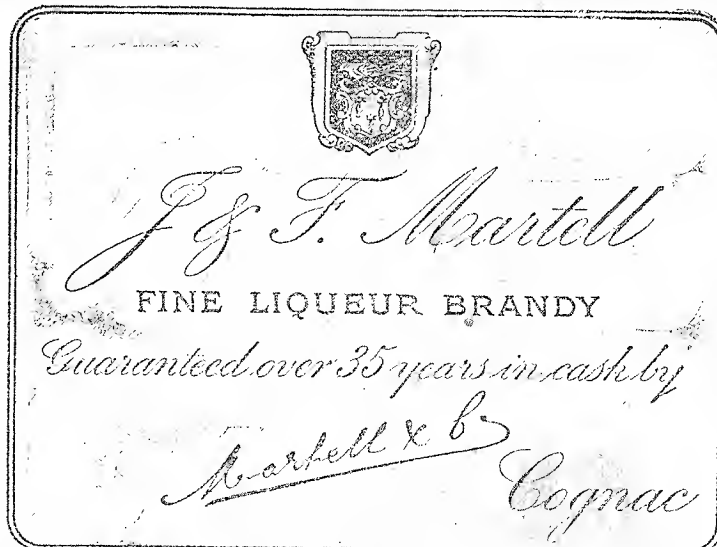 J & F. Martell
FINE LIQUEUR BRANDY
Guaranteed over 35 years in cash by
Martell & Co
Cognac